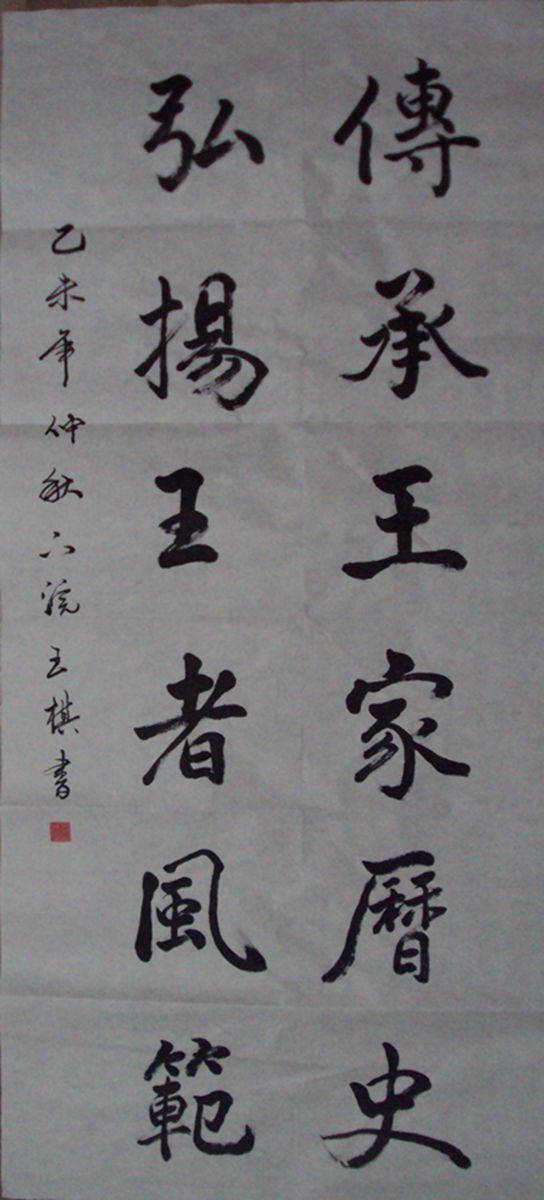 傳承王家曆史
弘揚王者風範
乙未年仲秋六浣王棋書